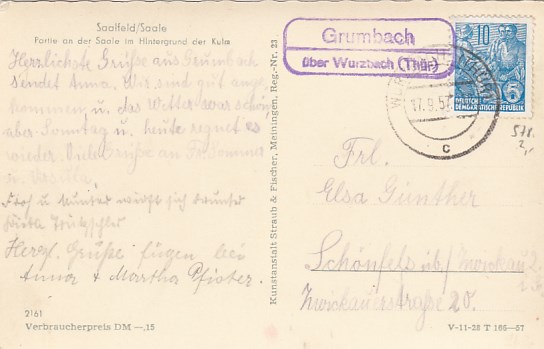 Saalfeld/Saale
Partie an der Saale im Hintergrund der Kulm
Herzlichste Grüße aus Grumbach
sendet Anna. Wir sind gut ange-
kommen, u. das Wetter war schön
aber Sonntag u. heute regnet es
wieder. Viele Grüße an Fr. Sommer
u.
Froh u. munter
Herzl. Grüße fügen bei
Anna & Martha Pfister.
2161
Verbraucherpreis DM —,15
Kunstanstalt Straub & Fischer, Meiningen, Reg.-Nr. 23
Grumbach
über Wurzbach (Thür)
17.9.57
c
10
DEUTSCHE
DEMOKRATISCHE REPUBLIK
578
2,
Frl.
Elsa Günther
Schönfels üb/ Zwickau 2
Zwickauerstraße 20.
V-11-28 T 186—57